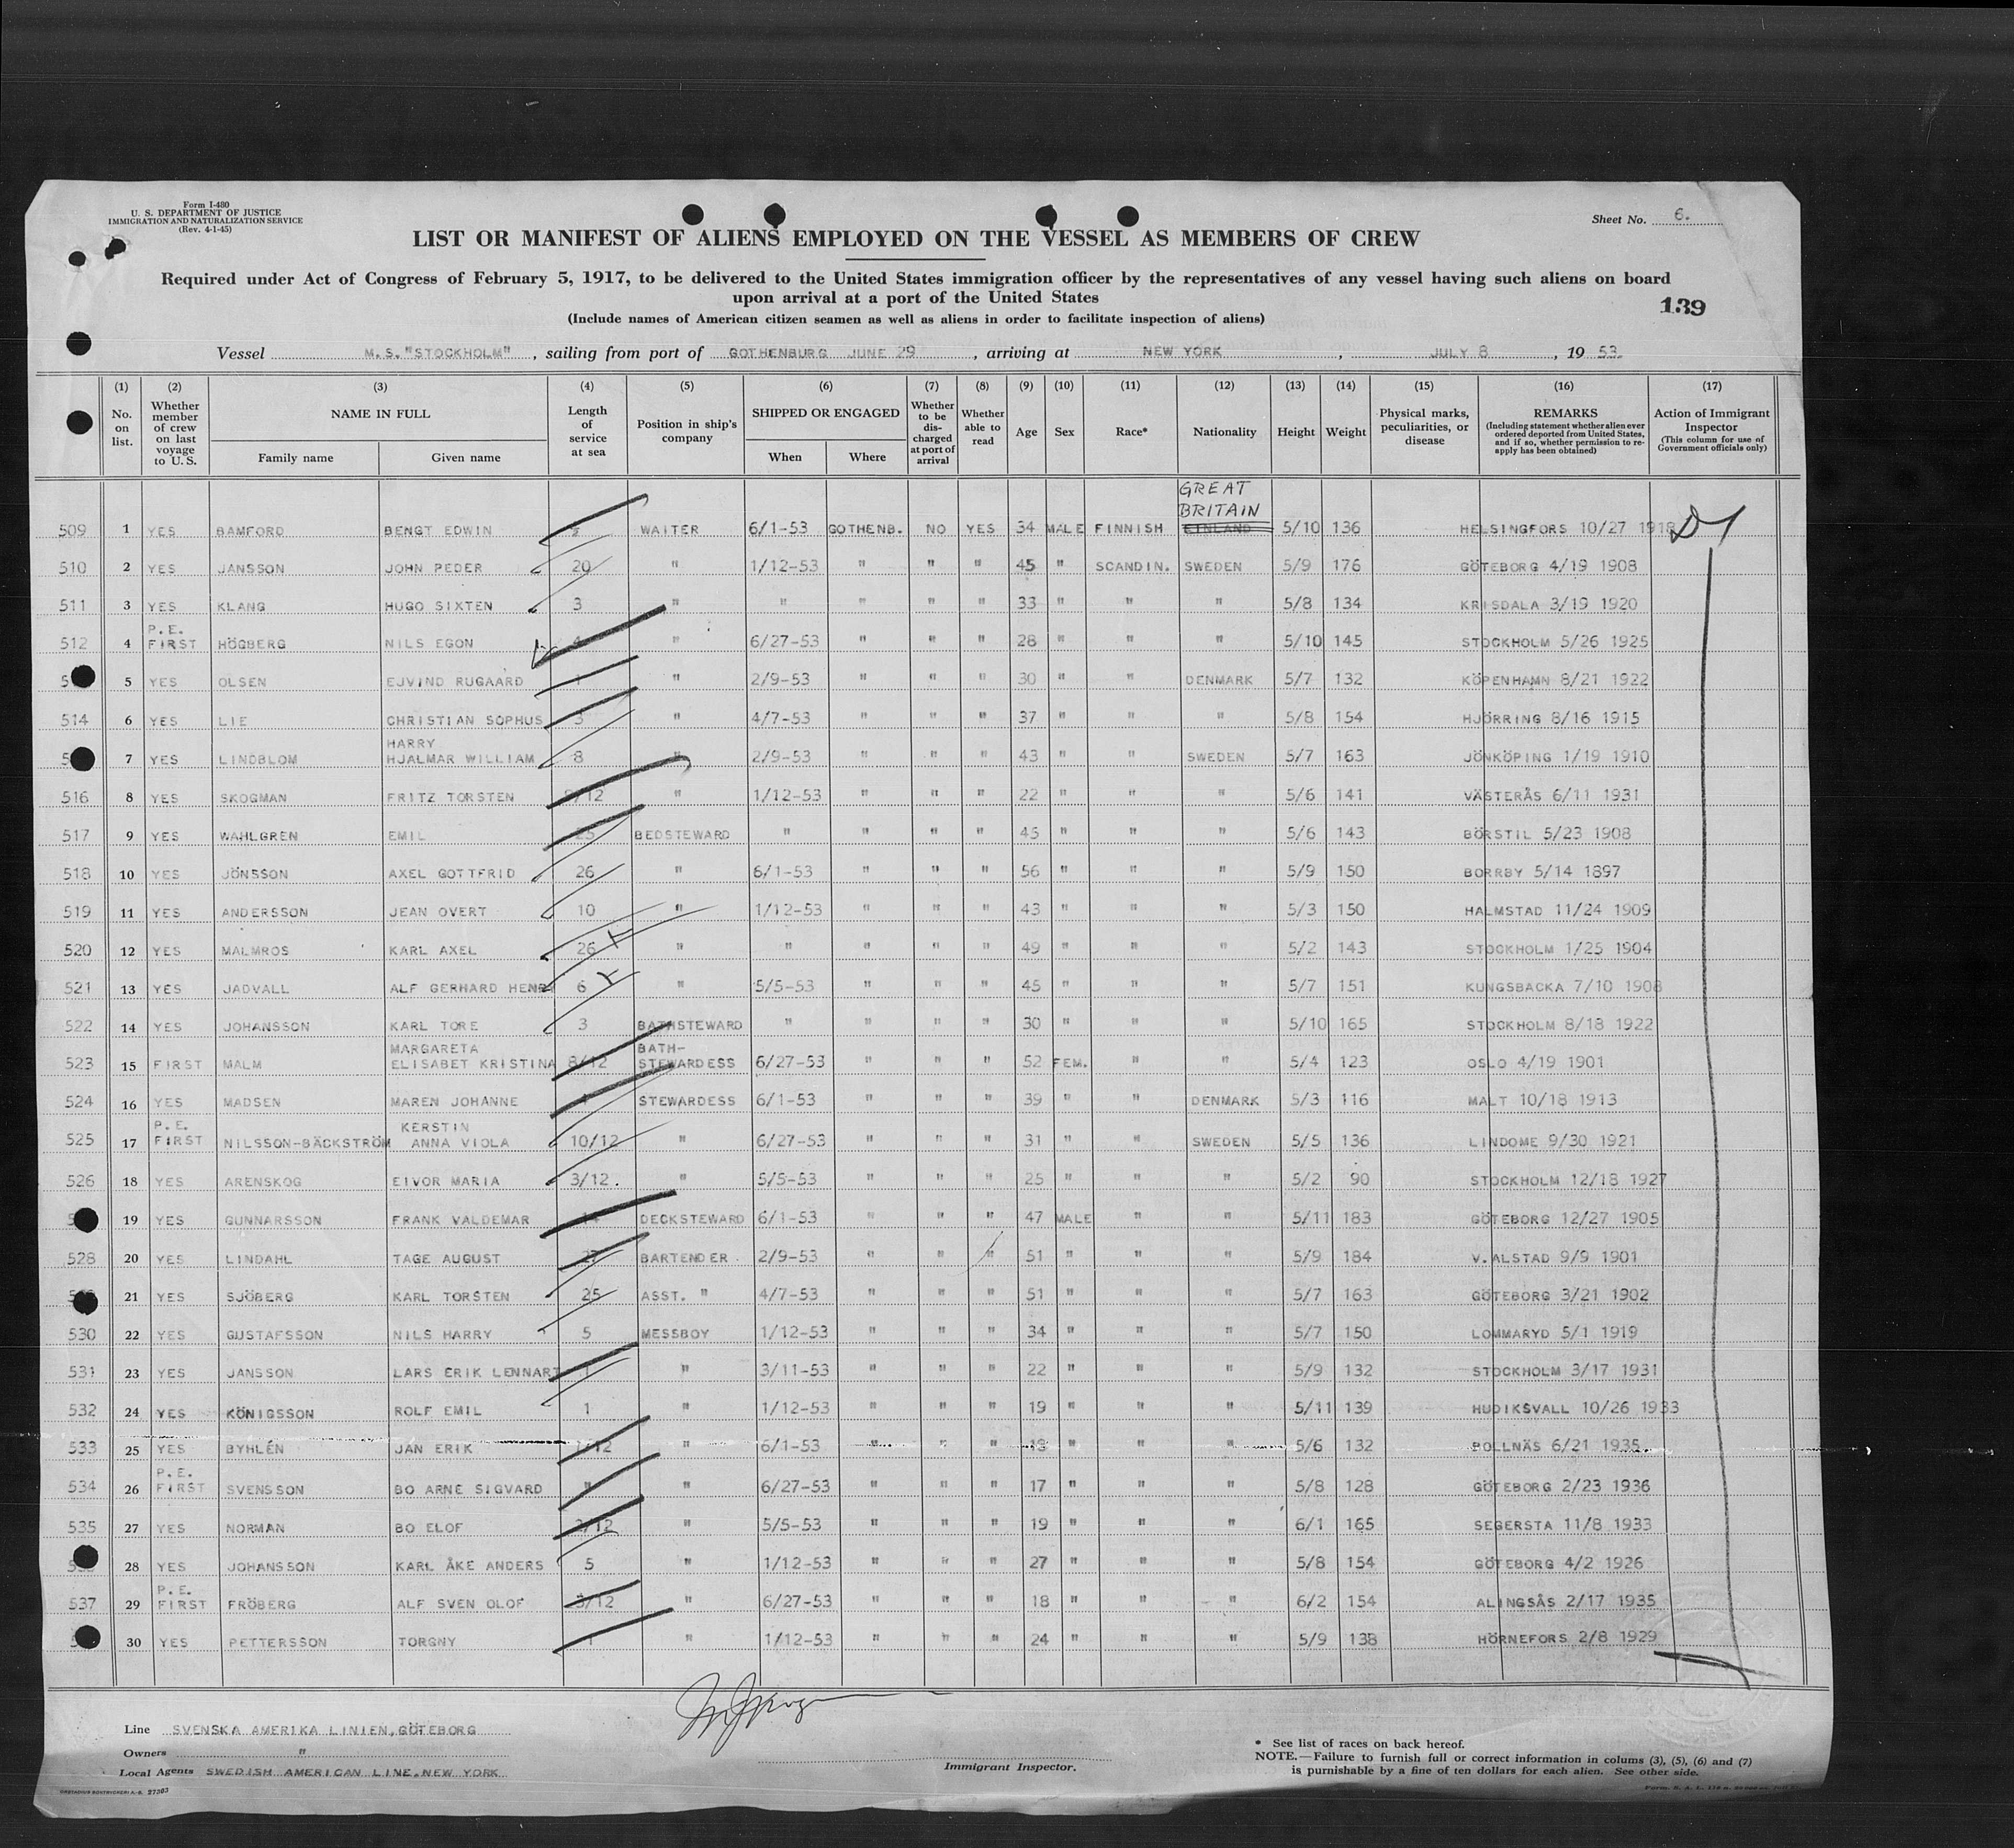 Form I-480
U. S. DEPARTMENT OF JUSTICE
IMMIGRATION AND NATURALIZATION SERVICE
(Rev. 4-1-45)
Sheet No. 6.
LIST OR MANIFEST OF ALIENS EMPLOYED ON THE VESSEL AS MEMBERS OF CREW
Required under Act of Congress of February 5, 1917, to be delivered to the United States immigration officer by the representatives of any vessel having such aliens on board
upon arrival at a port of the United States
139
(Include names of American citizen seamen as well as aliens in order to facilitate inspection of aliens)
Vessel M.S."STOCKHOLM", sailing from port of GOTHENBURG JUNE 29, arriving at NEW YORK, JULY 8, 19 53.
(1) No. on list. (2) Whether member of crew on last voyage to U. S. (3) NAME IN FULL Family name Given name (4) Length of service at sea (5) Position in ship's company (6) SHIPPED OR ENGAGED When Where (7) Whether to be discharged at port of arrival (8) Whether able to read (9) Age (10) Sex (11) Race* (12) Nationality (13) Height (14) Weight (15) Physical marks, peculiarities, or disease (16) REMARKS (Including statement whether alien ever ordered deported from United States, and if so, whether permission to reapply has been obtained) (17) Action of Immigrant Inspector (This column for use of Government officials only)
GREAT
BRITAIN
509 1 YES BAMFORD BENGT EDWIN WAITER 6/1-53 GOTHENB. NO YES 34 MALE FINNISH FINLAND 5/10 136 HELSINGFORS 10/27 1918
510 2 YES JANSSON JOHN PEDER 20 " 1/12-53 " " " 45 " SCANDIN. SWEDEN 5/9 176 GÖTEBORG 4/19 1908
511 3 YES KLANG HUGO SIXTEN 3 " " " " " 33 " " " 5/8 134 KRISDALA 3/19 1920
512 4 P.E. FIRST HÖGBERG NILS EGON " 6/27-53 " " " 28 " " " 5/10 145 STOCKHOLM 5/26 1925
5 YES OLSEN EJVIND RUGAARD 1 " 2/9-53 " " " 30 " " DENMARK 5/7 132 KÖPENHAMN 8/21 1922
514 6 YES LIE CHRISTIAN SOPHUS 3 " 4/7-53 " " " 37 " " " 5/8 154 HJÖRRING 8/16 1915
7 YES LINDBLOM HARRY HJALMAR WILLIAM 8 " 2/9-53 " " " 43 " " SWEDEN 5/7 163 JÖNKÖPING 1/19 1910
516 8 YES SKOGMAN FRITZ TORSTEN 9/12 " 1/12-53 " " " 22 " " " 5/6 141 VÄSTERÅS 6/11 1931
517 9 YES WAHLGREN EMIL 25 BEDSTEWARD " " " " 45 " " " 5/6 143 BÖRSTIL 5/23 1908
518 10 YES JÖNSSON AXEL GOTTFRID 26 " 6/1-53 " " " 56 " " " 5/9 150 BORRBY 5/14 1897
519 11 YES ANDERSSON JEAN OVERT 10 " 1/12-53 " " " 43 " " " 5/3 150 HALMSTAD 11/24 1909
520 12 YES MALMROS KARL AXEL 26 " " " " " 49 " " " 5/2 143 STOCKHOLM 1/25 1904
521 13 YES JADVALL ALF GERHARD HENRY 6 " 5/5-53 " " " 45 " " " 5/7 151 KUNGSBACKA 7/10 1908
522 14 YES JOHANSSON KARL TORE 3 BATHSTEWARD " " " " 30 " " " 5/10 165 STOCKHOLM 8/18 1922
523 15 FIRST MALM MARGARETA ELISABET KRISTINA 8/12 BATH-STEWARDESS 6/27-53 " " " 52 FEM. " " 5/4 123 OSLO 4/19 1901
524 16 YES MADSEN MAREN JOHANNE 4 STEWARDESS 6/1-53 " " " 39 " " DENMARK 5/3 116 MALT 10/18 1913
525 17 P.E. FIRST NILSSON-BÄCKSTRÖM KERSTIN ANNA VIOLA 10/12 " 6/27-53 " " " 31 " " SWEDEN 5/5 136 LINDOME 9/30 1921
526 18 YES ARENSKOG EIVOR MARIA 3/12. " 5/5-53 " " " 25 " " " 5/2 90 STOCKHOLM 12/18 1927
19 YES GUNNARSSON FRANK VALDEMAR 14 DECKSTEWARD 6/1-53 " " " 47 MALE " " 5/11 183 GÖTEBORG 12/27 1905
528 20 YES LINDAHL TAGE AUGUST 27 BARTENDER. 2/9-53 " " " 51 " " " 5/9 184 V.ALSTAD 9/9 1901
21 YES SJÖBERG KARL TORSTEN 25 ASST. " 4/7-53 " " " 51 " " " 5/7 163 GÖTEBORG 3/21 1902
530 22 YES GUSTAFSSON NILS HARRY 5 MESSBOY 1/12-53 " " " 34 " " " 5/7 150 LOMMARYD 5/1 1919
531 23 YES JANSSON LARS ERIK LENNART 1 " 3/11-53 " " " 22 " " " 5/9 132 STOCKHOLM 3/17 1931
532 24 YES KÖNIGSSON ROLF EMIL 1 " 1/12-53 " " " 19 " " " 5/11 139 HUDIKSVALL 10/26 1933
533 25 YES BYHLÉN JAN ERIK 1/12 " 6/1-53 " " " 18 " " " 5/6 132 BOLLNÄS 6/21 1935
534 26 P.E. FIRST SVENSSON BO ARNE SIGVARD " " 6/27-53 " " " 17 " " " 5/8 128 GÖTEBORG 2/23 1936
535 27 YES NORMAN BO ELOF 2/12 " 5/5-53 " " " 19 " " " 6/1 165 SEGERSTA 11/8 1933
28 YES JOHANSSON KARL ÅKE ANDERS 5 " 1/12-53 " " " 27 " " " 5/8 154 GÖTEBORG 4/2 1926
537 29 P.E. FIRST FRÖBERG ALF SVEN OLOF 3/12 " 6/27-53 " " " 18 " " " 6/2 154 ALINGSÅS 2/17 1935
30 YES PETTERSSON TORGNY 1 " 1/12-53 " " " 24 " " " 5/9 138 HÖRNEFORS 2/8 1929
Line SVENSKA AMERIKA LINIEN, GÖTEBORG
Owners "
Local Agents SWEDISH AMERICAN LINE, NEW YORK
Immigrant Inspector.
* See list of races on back hereof.
NOTE.—Failure to furnish full or correct information in colums (3), (5), (6) and (7)
is punishable by a fine of ten dollars for each alien. See other side.
27303